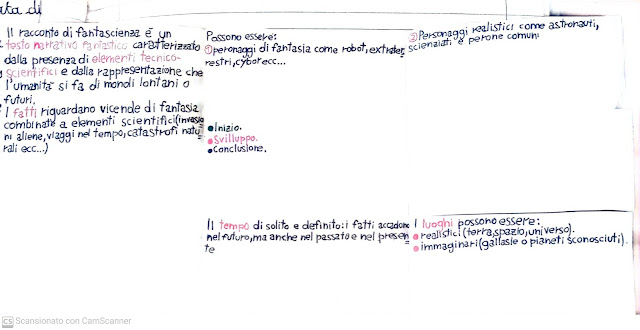 ata di
Il racconto di fantascienza é un
testo narrativo fantastico caratterizzato
dalla presenza di elementi tecnico-
scientifici e dalla rappresentazione che
l'umanità si fa di mondi lontani o
futuri.
I fatti riguardano vicende di fantasia
combinate a elementi scientifici(invasio
ni aliene, viaggi nel tempo, catastrofi natu
rali ecc...)
Possono essere:
① peronaggi di fantasia come robot, extrater
restri, cyborg ecc...
② Personaggi realistici come astronauti,
scienziati e perone comuni
•Inizio.
•Sviluppo.
•Conclusione.
Il tempo di solito e definito: i fatti accadono
nel futuro, ma anche nel passato e nel presen
te
I luoghi possono essere:
• realistici (terra, spazio, universo).
• immaginari (gallasie o pianeti sconosciuti).
CS Scansionato con CamScanner